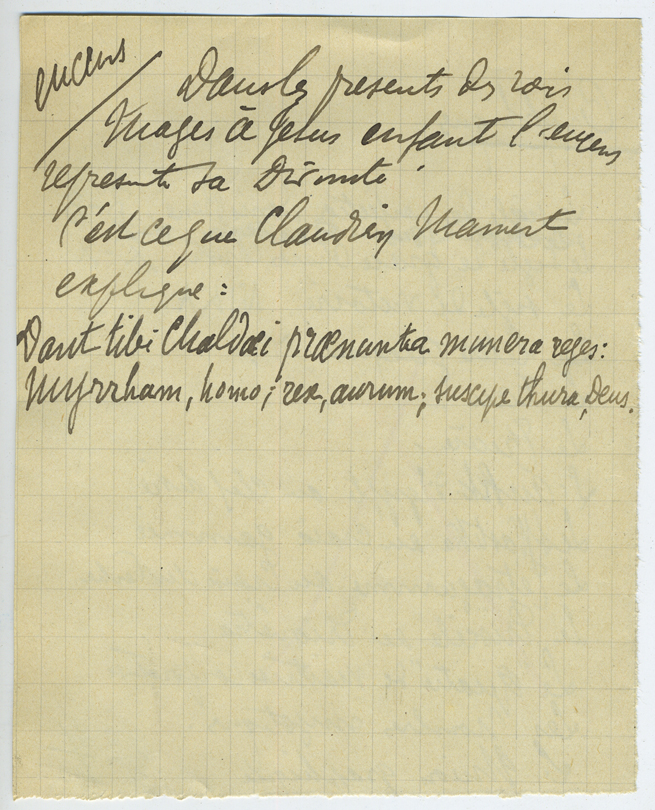 encens
Dans les presents des rois
Mages à Jesus enfant l'encens
represente sa Divinité.
C'est ce que Claudien Mamert
explique :
Dant tibi Chaldæi prænuntia munera reges:
Myrrham, homo; rex, aurum; suscipe thura, Deus.